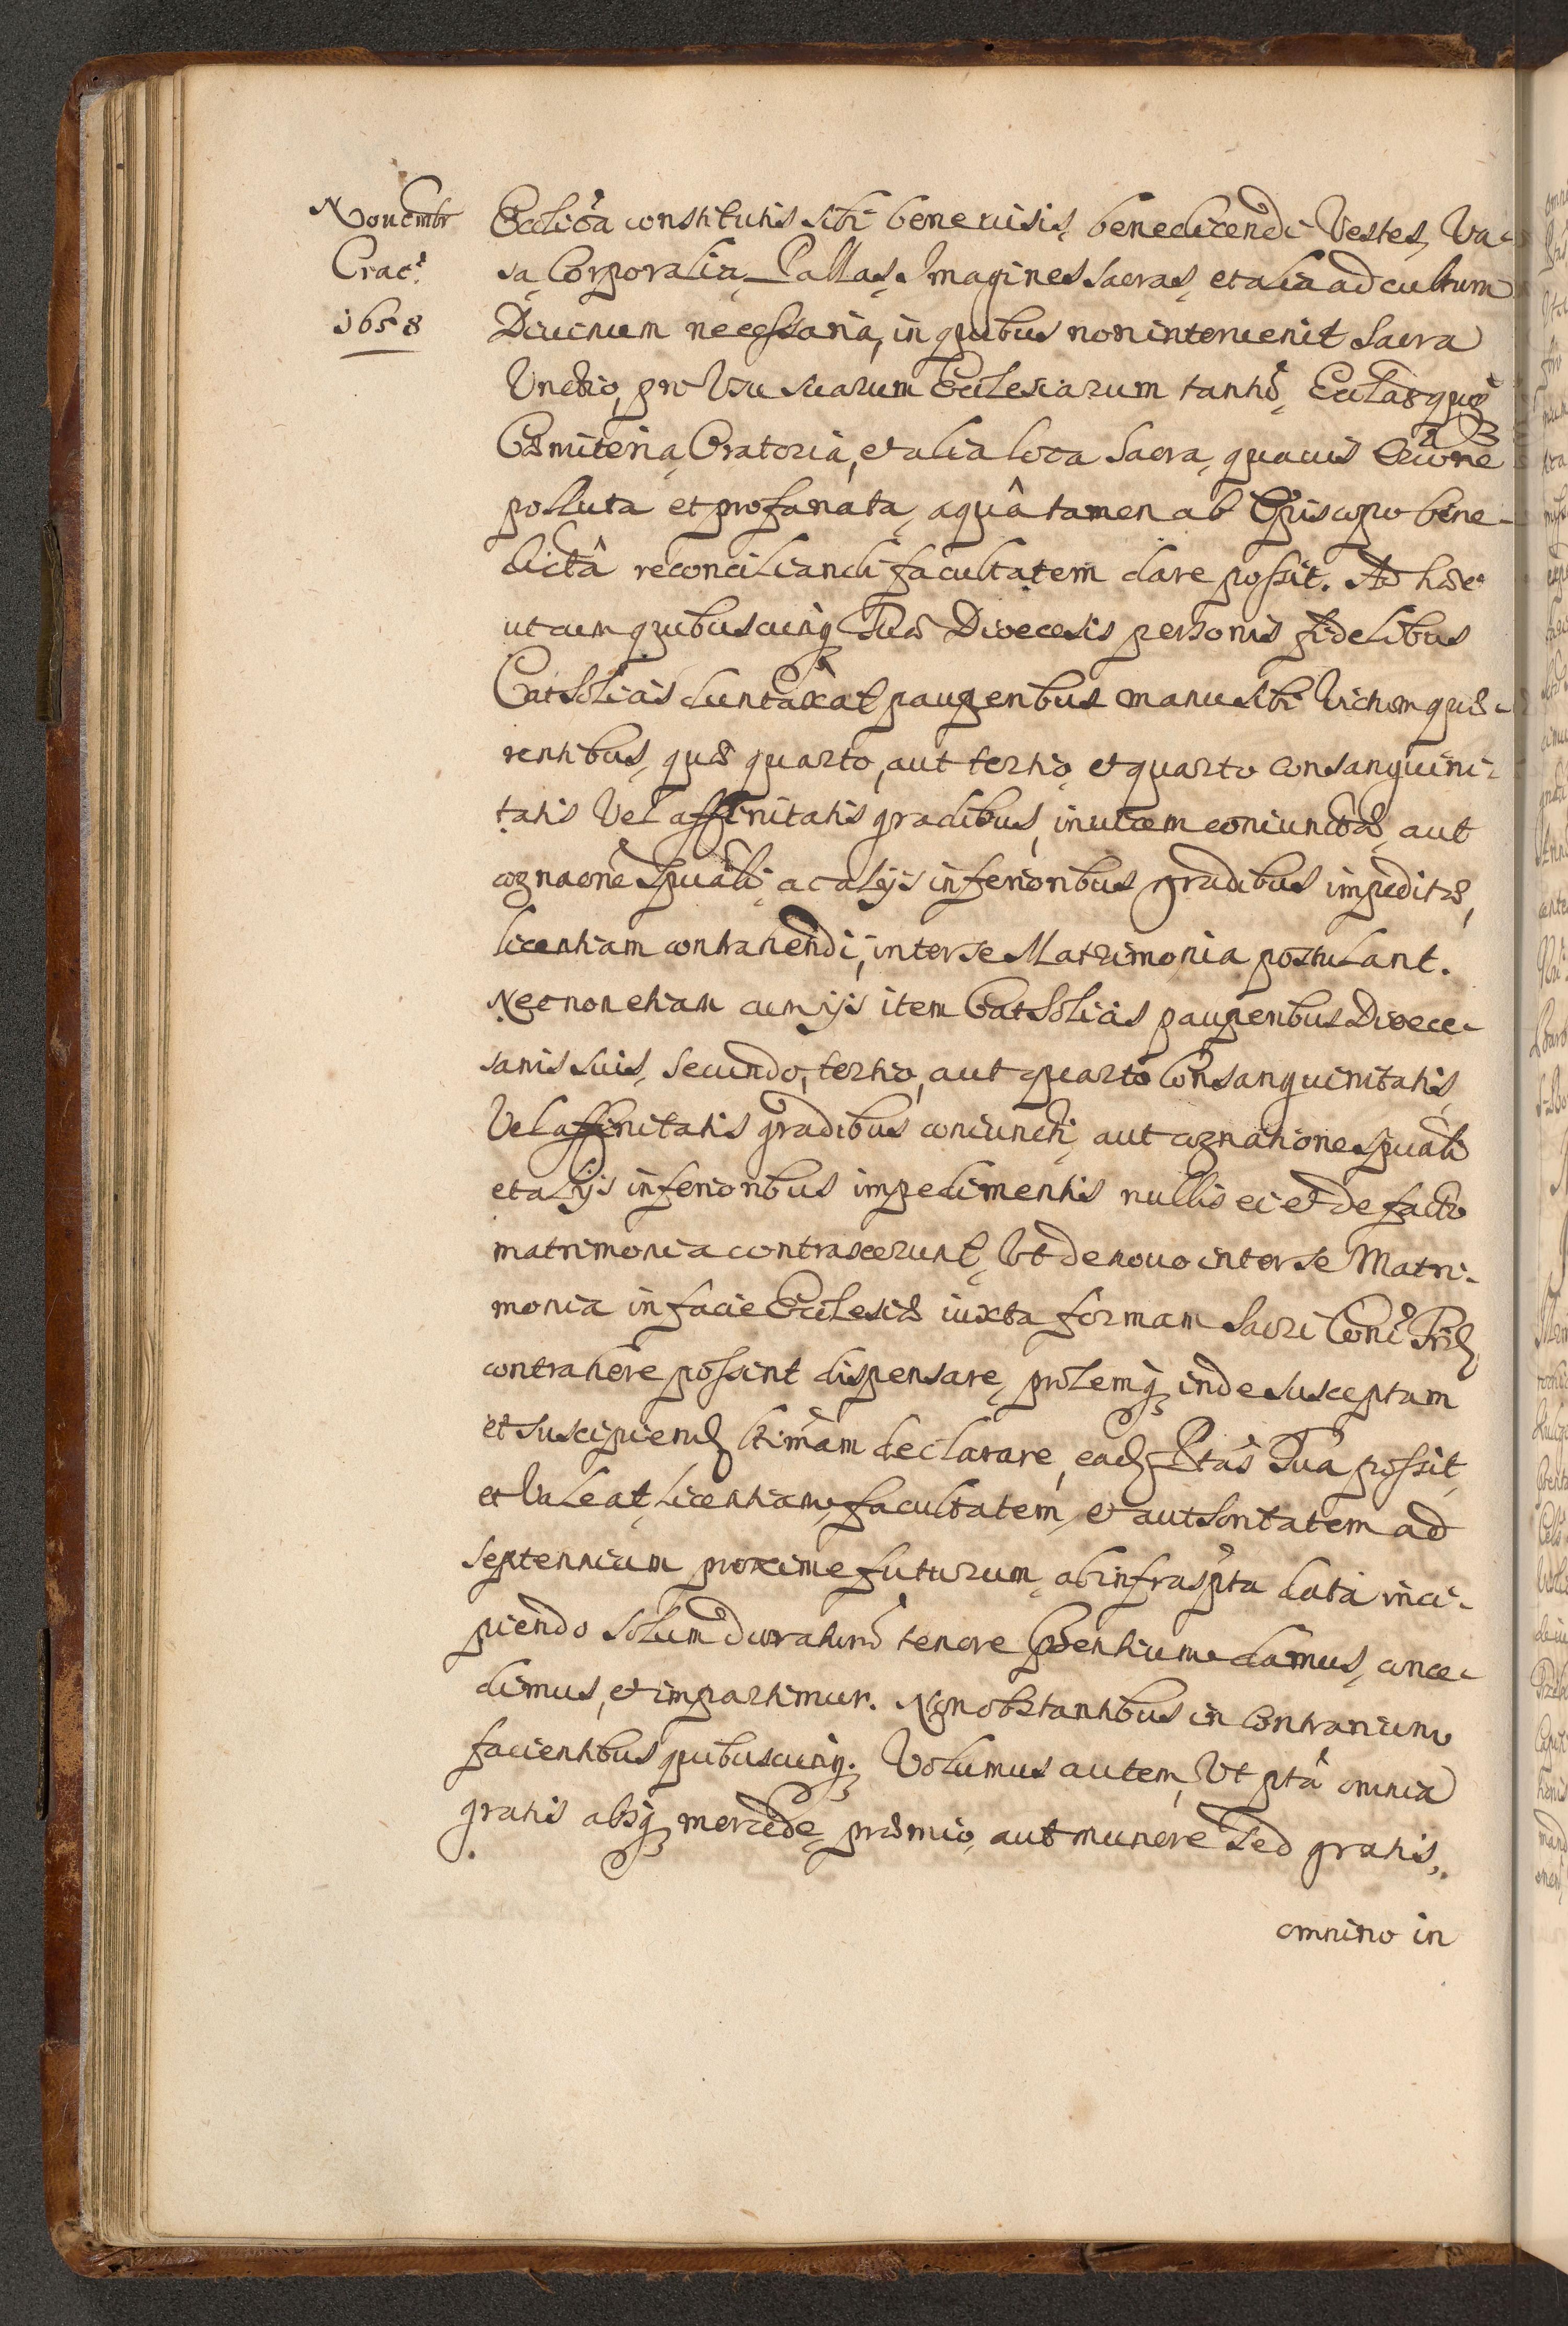 Nouembr
Crac:
1658
Eccliĉa constitutis sibi beneuisis, benedicendi Vestes, Va-
sa, Corporalia, Pallas, Imagines sacras, et alia ad cultum
Diuinum necessaria, in quibus non interuenit Sacra
Unctio, pro Usu suarum Ecclesiarum tantũ, Ecclãs quoq;
Cæmiteria, Oratoria, et alia loca Sacra, quauis
polluta et profanata, aquâ tamen ab Episcopo bene-
dictâ reconciliandi facultatem dare possit. Ad hæc
ut cum quibuscunq; Tuæ Dioecesis personis fidelibus
Catholicis duntaxat pauperibus manu sibi Victum quæ-
rentibus, quæ quarto, aut tertio, et quarto consanguini-
tatis Vel affinitatis gradibus, inuicem coniunctæ, aut
cognaõne Spuali, ac alijs inferioribus gradibus impeditæ,
licentiam contrahendi, inter se Matrimonia postulant.
Necnon etiam cum ijs item Catholicis pauperibus Dioece-
sanis suis, Secundo, tertio, aut quarto Consanguinitatis,
Vel affinitatis gradibus coniuncti, aut cognatione Spuali
et alijs inferioribus impedimentis nullis ei et de facto
matrimonia contraxerunt, Ut de nouo inter se Matri-
monia in facie Ecclesiæ iuxta formam Sacri Conc: Trid
contrahere possint dispensare, prolemq; inde susceptam
et suscipiend ltimam declarare, ead Ptas Tua possit,
et Valeat, licentiam, facultatem, et authoritatem ad
septennium proxime futurum, ab infrasrpta data inci-
piendo solum duraturũ tenore pñtium damus, conce-
dimus, et impartimur. Non obstantibus in Contrarium
facientibus quibuscunq;. Volumus autem, Ut pta omnia
gratis absq; mercede, præmio, aut munere Sed gratis,
omnino in